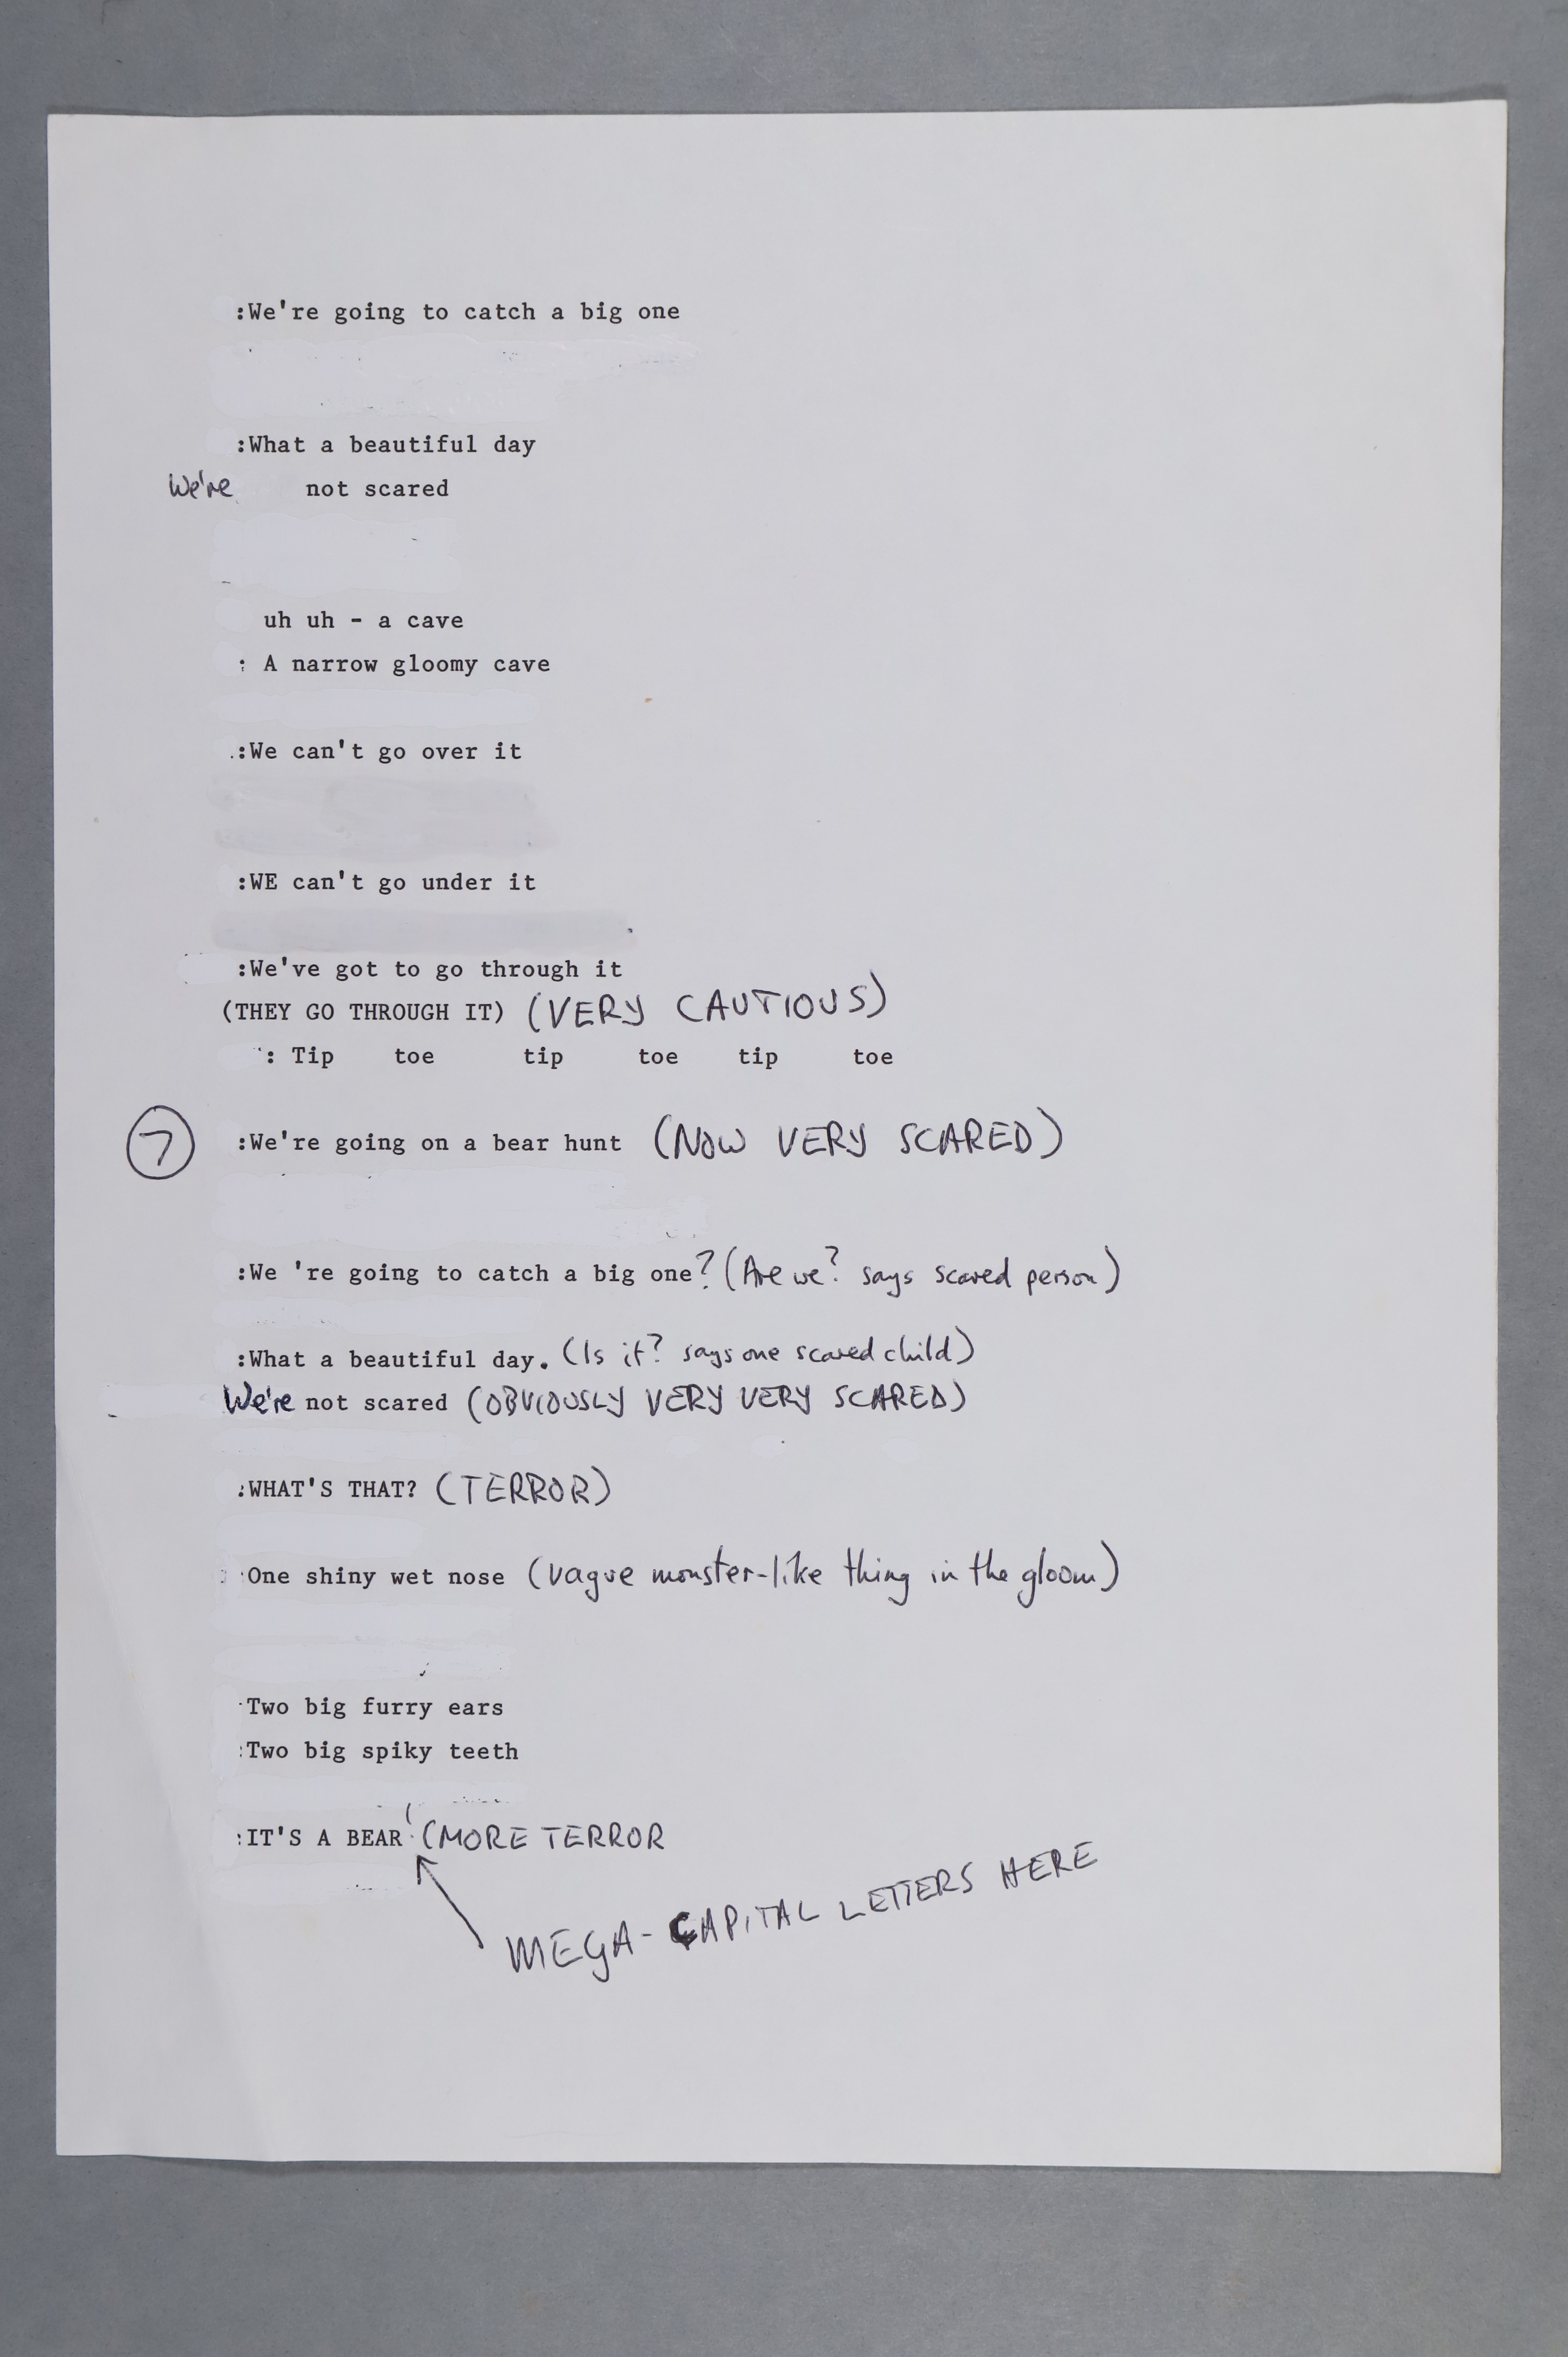 :We're going to catch a big one
:What a beautiful day
We're not scared
uh uh - a cave
: A narrow gloomy cave
:We can't go over it
:WE can't go under it
:We've got to go through it
(THEY GO THROUGH IT) (VERY CAUTIOUS)
: Tip toe tip toe tip toe
7 :We're going on a bear hunt (NOW VERY SCARED)
:We 're going to catch a big one? (Are we? says scared person)
:What a beautiful day. (Is it? says one scared child)
We're not scared (OBVIOUSLY VERY VERY SCARED)
:WHAT'S THAT? (TERROR)
:One shiny wet nose (vague monster-like thing in the gloom)
Two big furry ears
:Two big spiky teeth
:IT'S A BEAR! (MORE TERROR
MEGA-CAPITAL LETTERS HERE